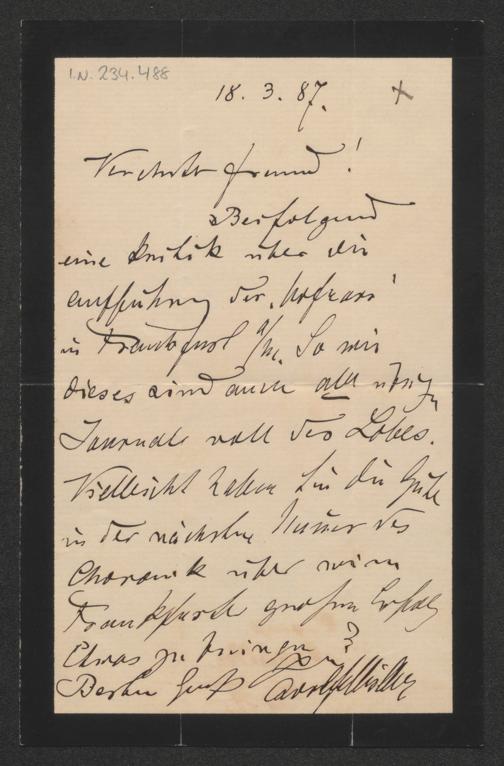 I.N. 234.488
18. 3. 87.
Verehrter Freund!
Beifolgend
eine Kritik über die
Aufführung der „Hofnarr"
in Frankfurt a/M. So wie
dieses sind auch alle übrigen
Journale voll des Lobes.
Vielleicht haben Sie die Güte
in der nächsten Numer des
Charonik über meinen
Frankfurter großen Erfolg
Etwas zu bringen?
Besten Gruß Adolf Müller